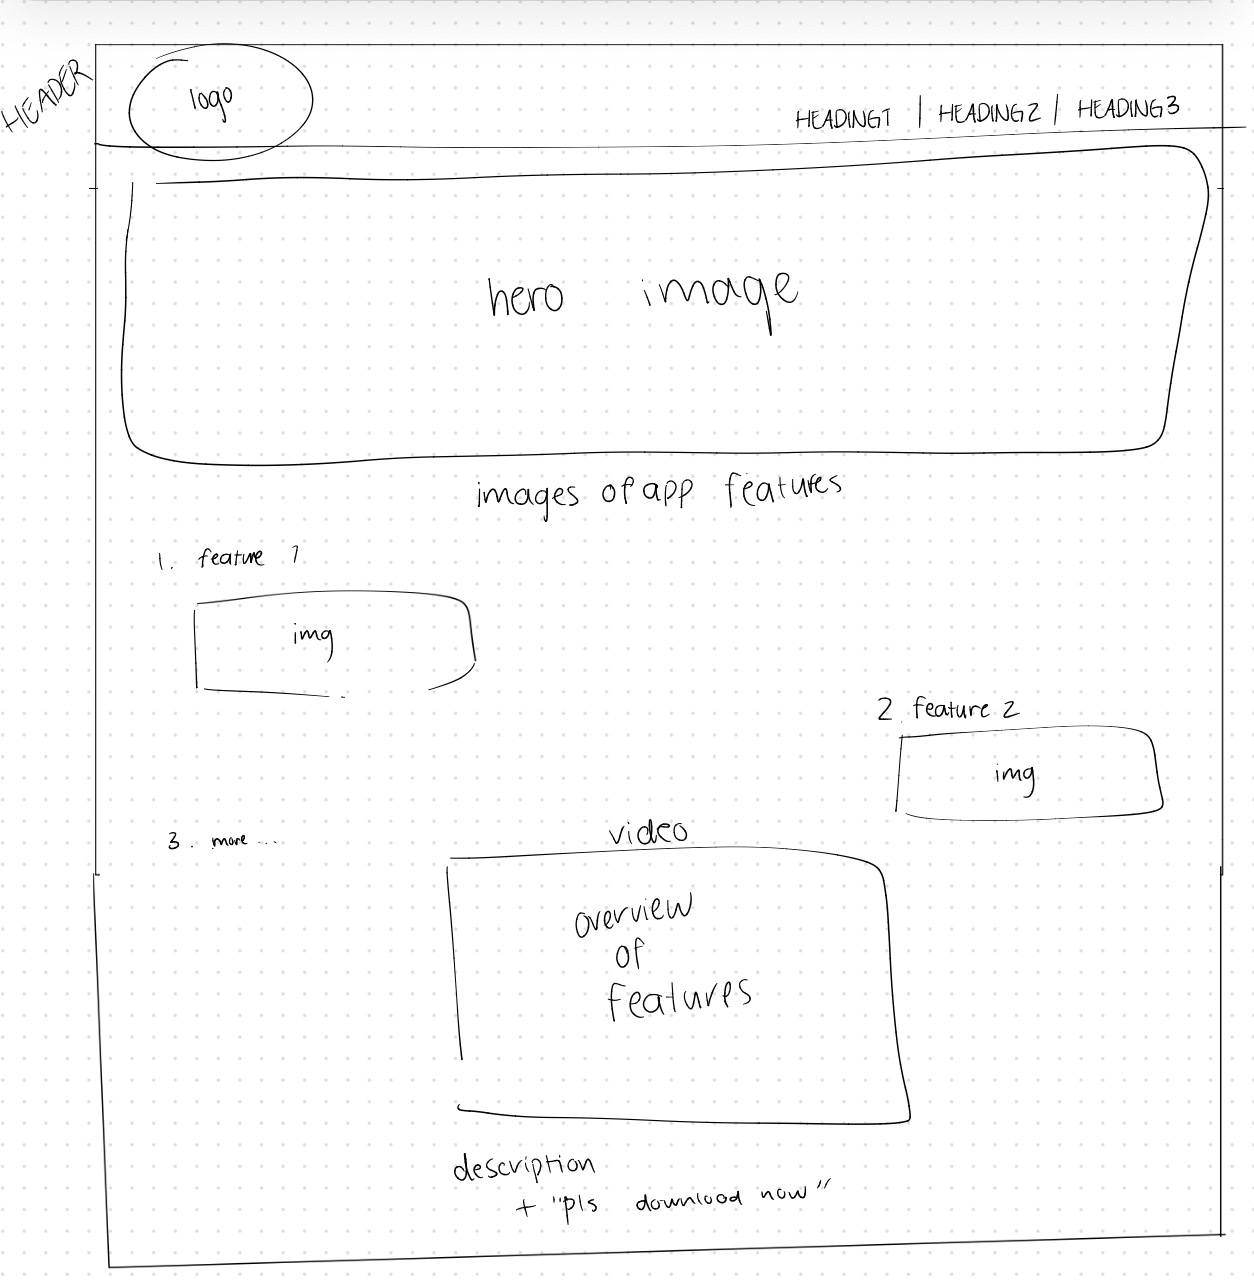 HEADER
logo
HEADING1 | HEADING2 | HEADING3
hero image
images of app features
1. feature 1
img
2. feature 2
img
3. more ...
video
overview
of
features
description
+ "pls download now"